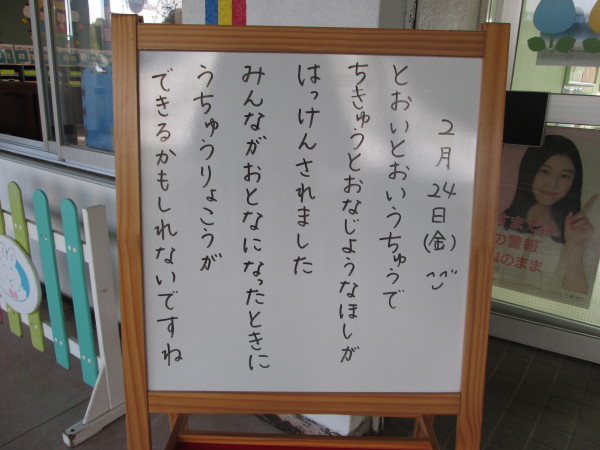 2月24日(金) ごご
とおいとおいうちゅうで
ちきゅうとおなじようなほしが
はっけんされました
みんながおとなになったときに
うちゅうりょこうが
できるかもしれないですね
の警報
のまま